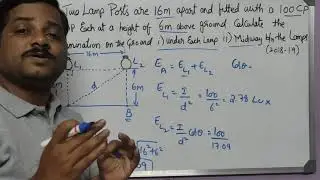 Two Lamp Posts are 16m apart and fitted with a 100 CP
Each at a height of 6m above ground. Calculate the
on the Ground i) under Each Lamp ii) Midway b/n the Lamps
(2018-19)
16m
L2
6m
d
B
E_A = E_L1 + E_L2
Cosθ =
E_L1 = I/d² = 100/6² = 2.78 Lux
E_L2 = I/d² Cosθ = 100/17.09
√16²+6²